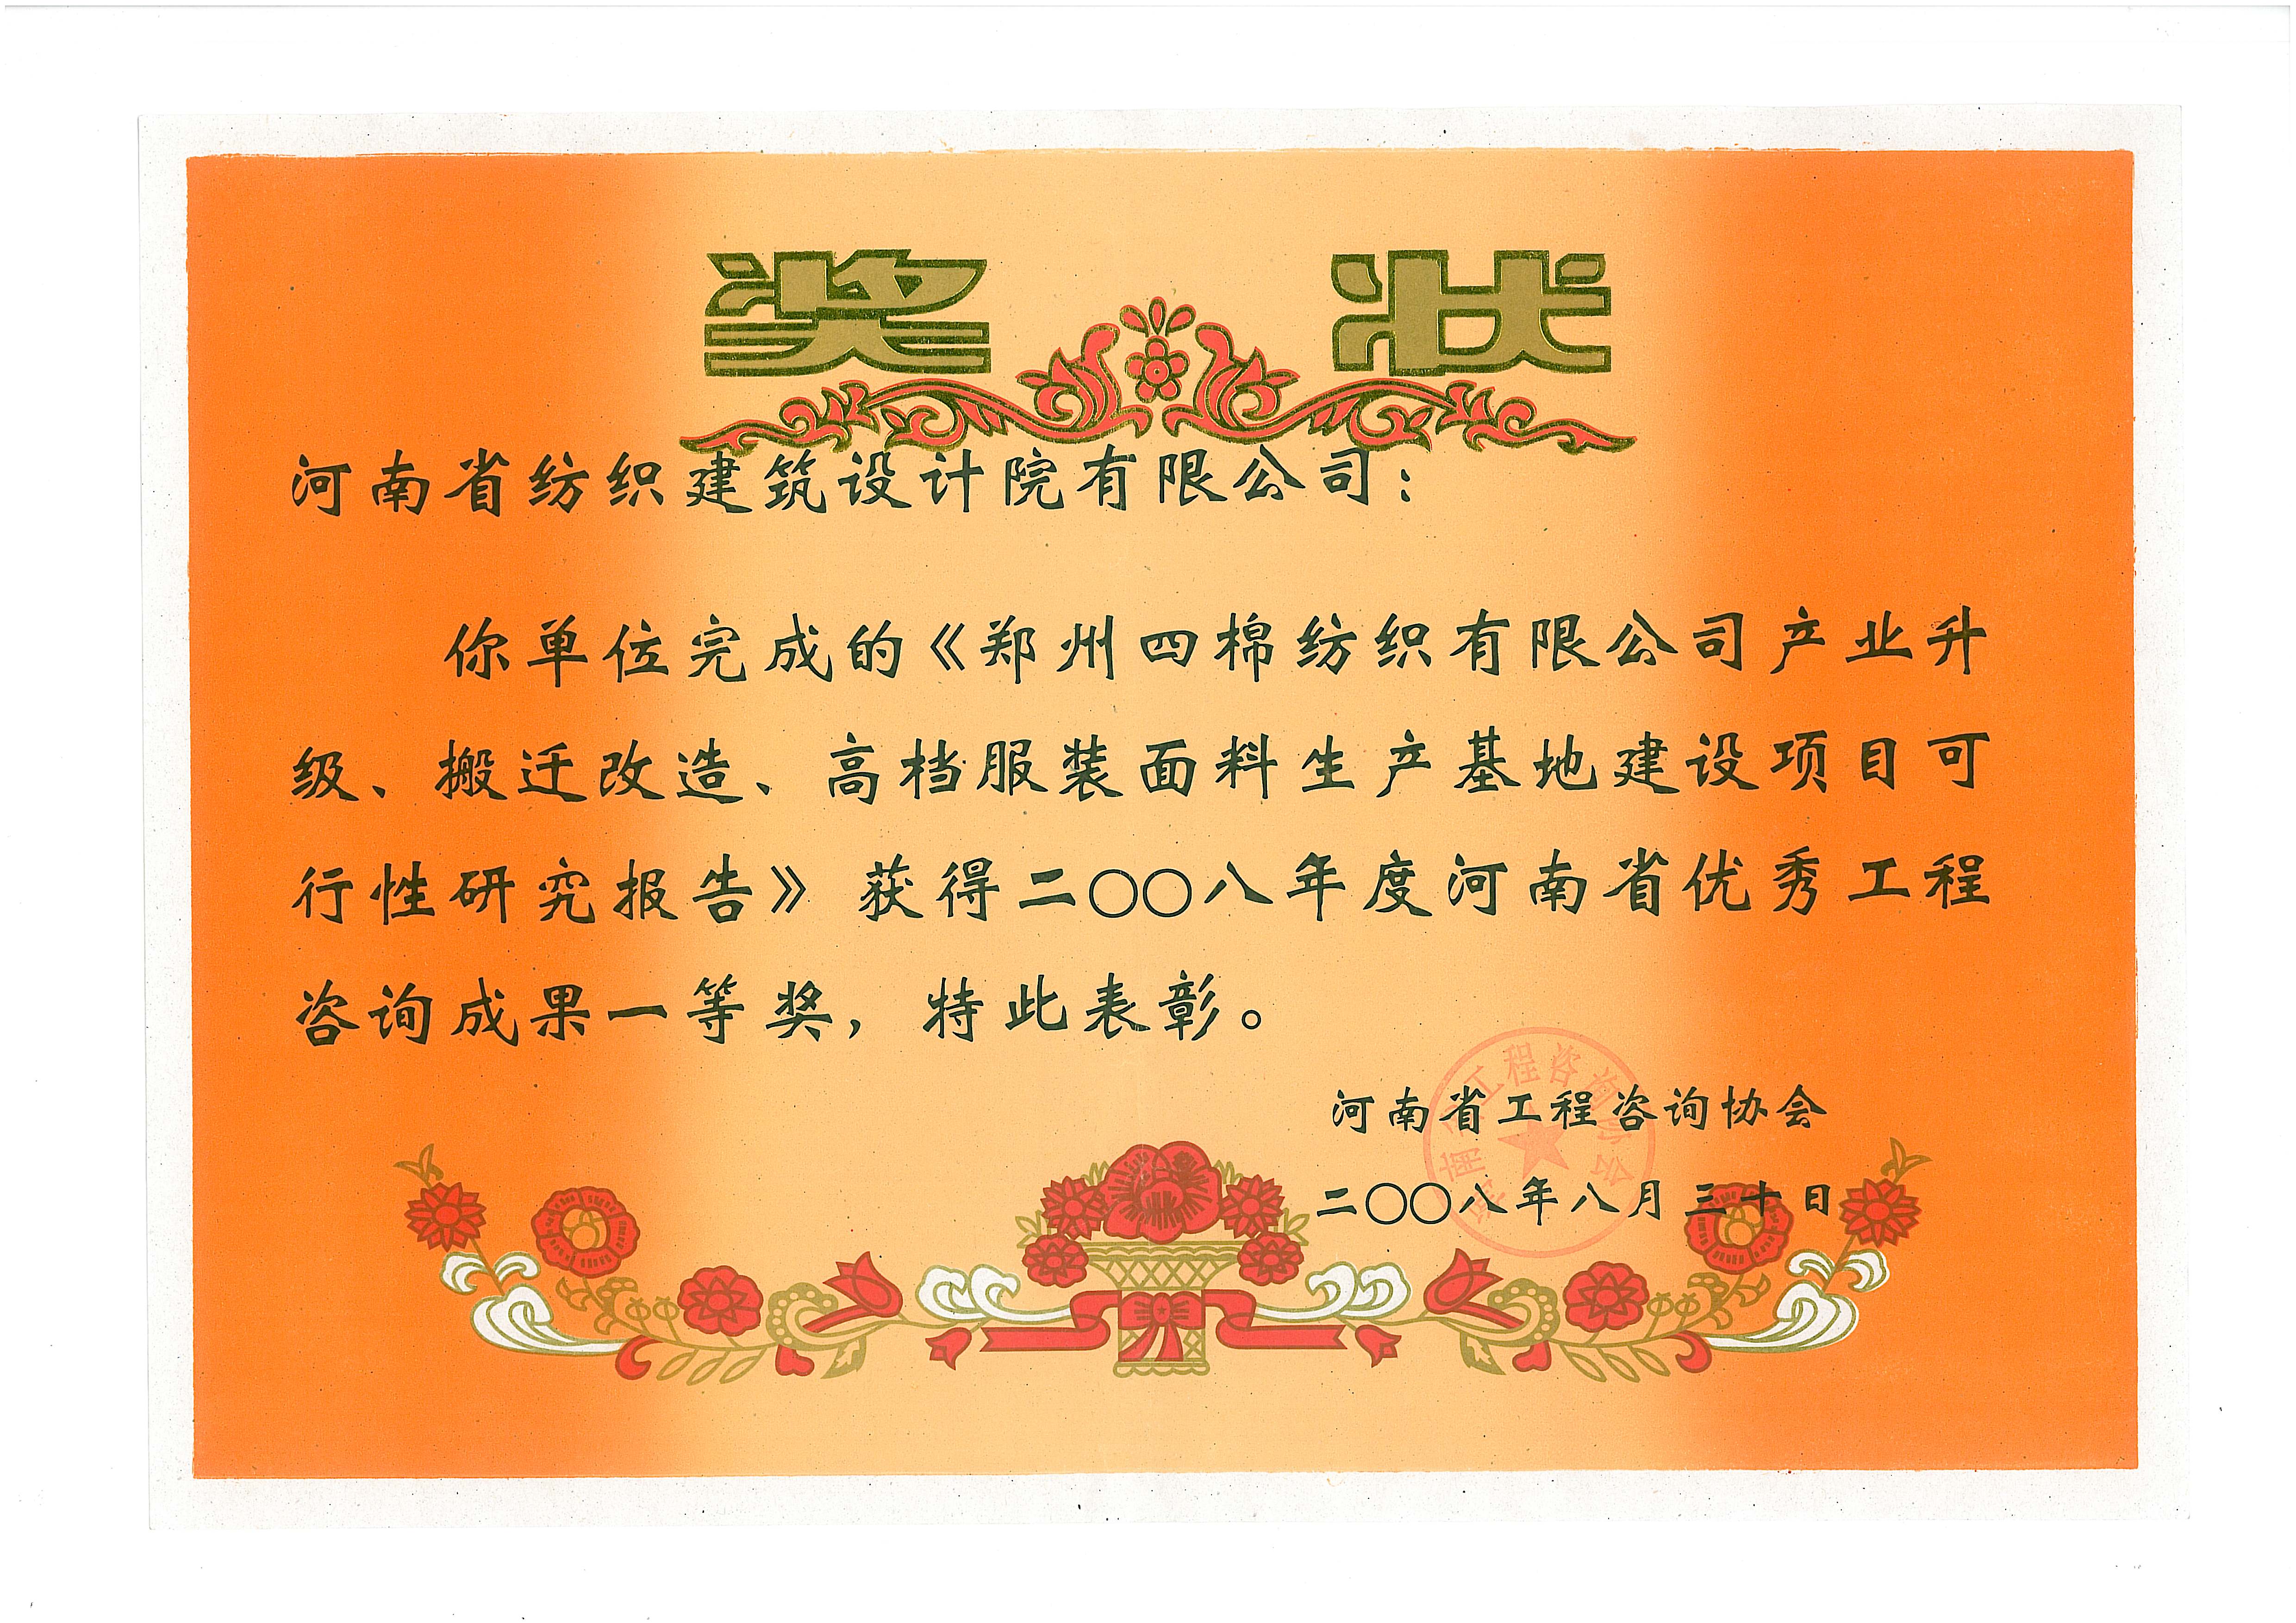 奖 状
河南省纺织建筑设计院有限公司：
你单位完成的《郑州四棉纺织有限公司产业升
级、搬迁改造、高档服装面料生产基地建设项目可
行性研究报告》获得二〇〇八年度河南省优秀工程
咨询成果一等奖，特此表彰。
河南省工程咨询协会
二〇〇八年八月三十日
河南省工程咨询协会